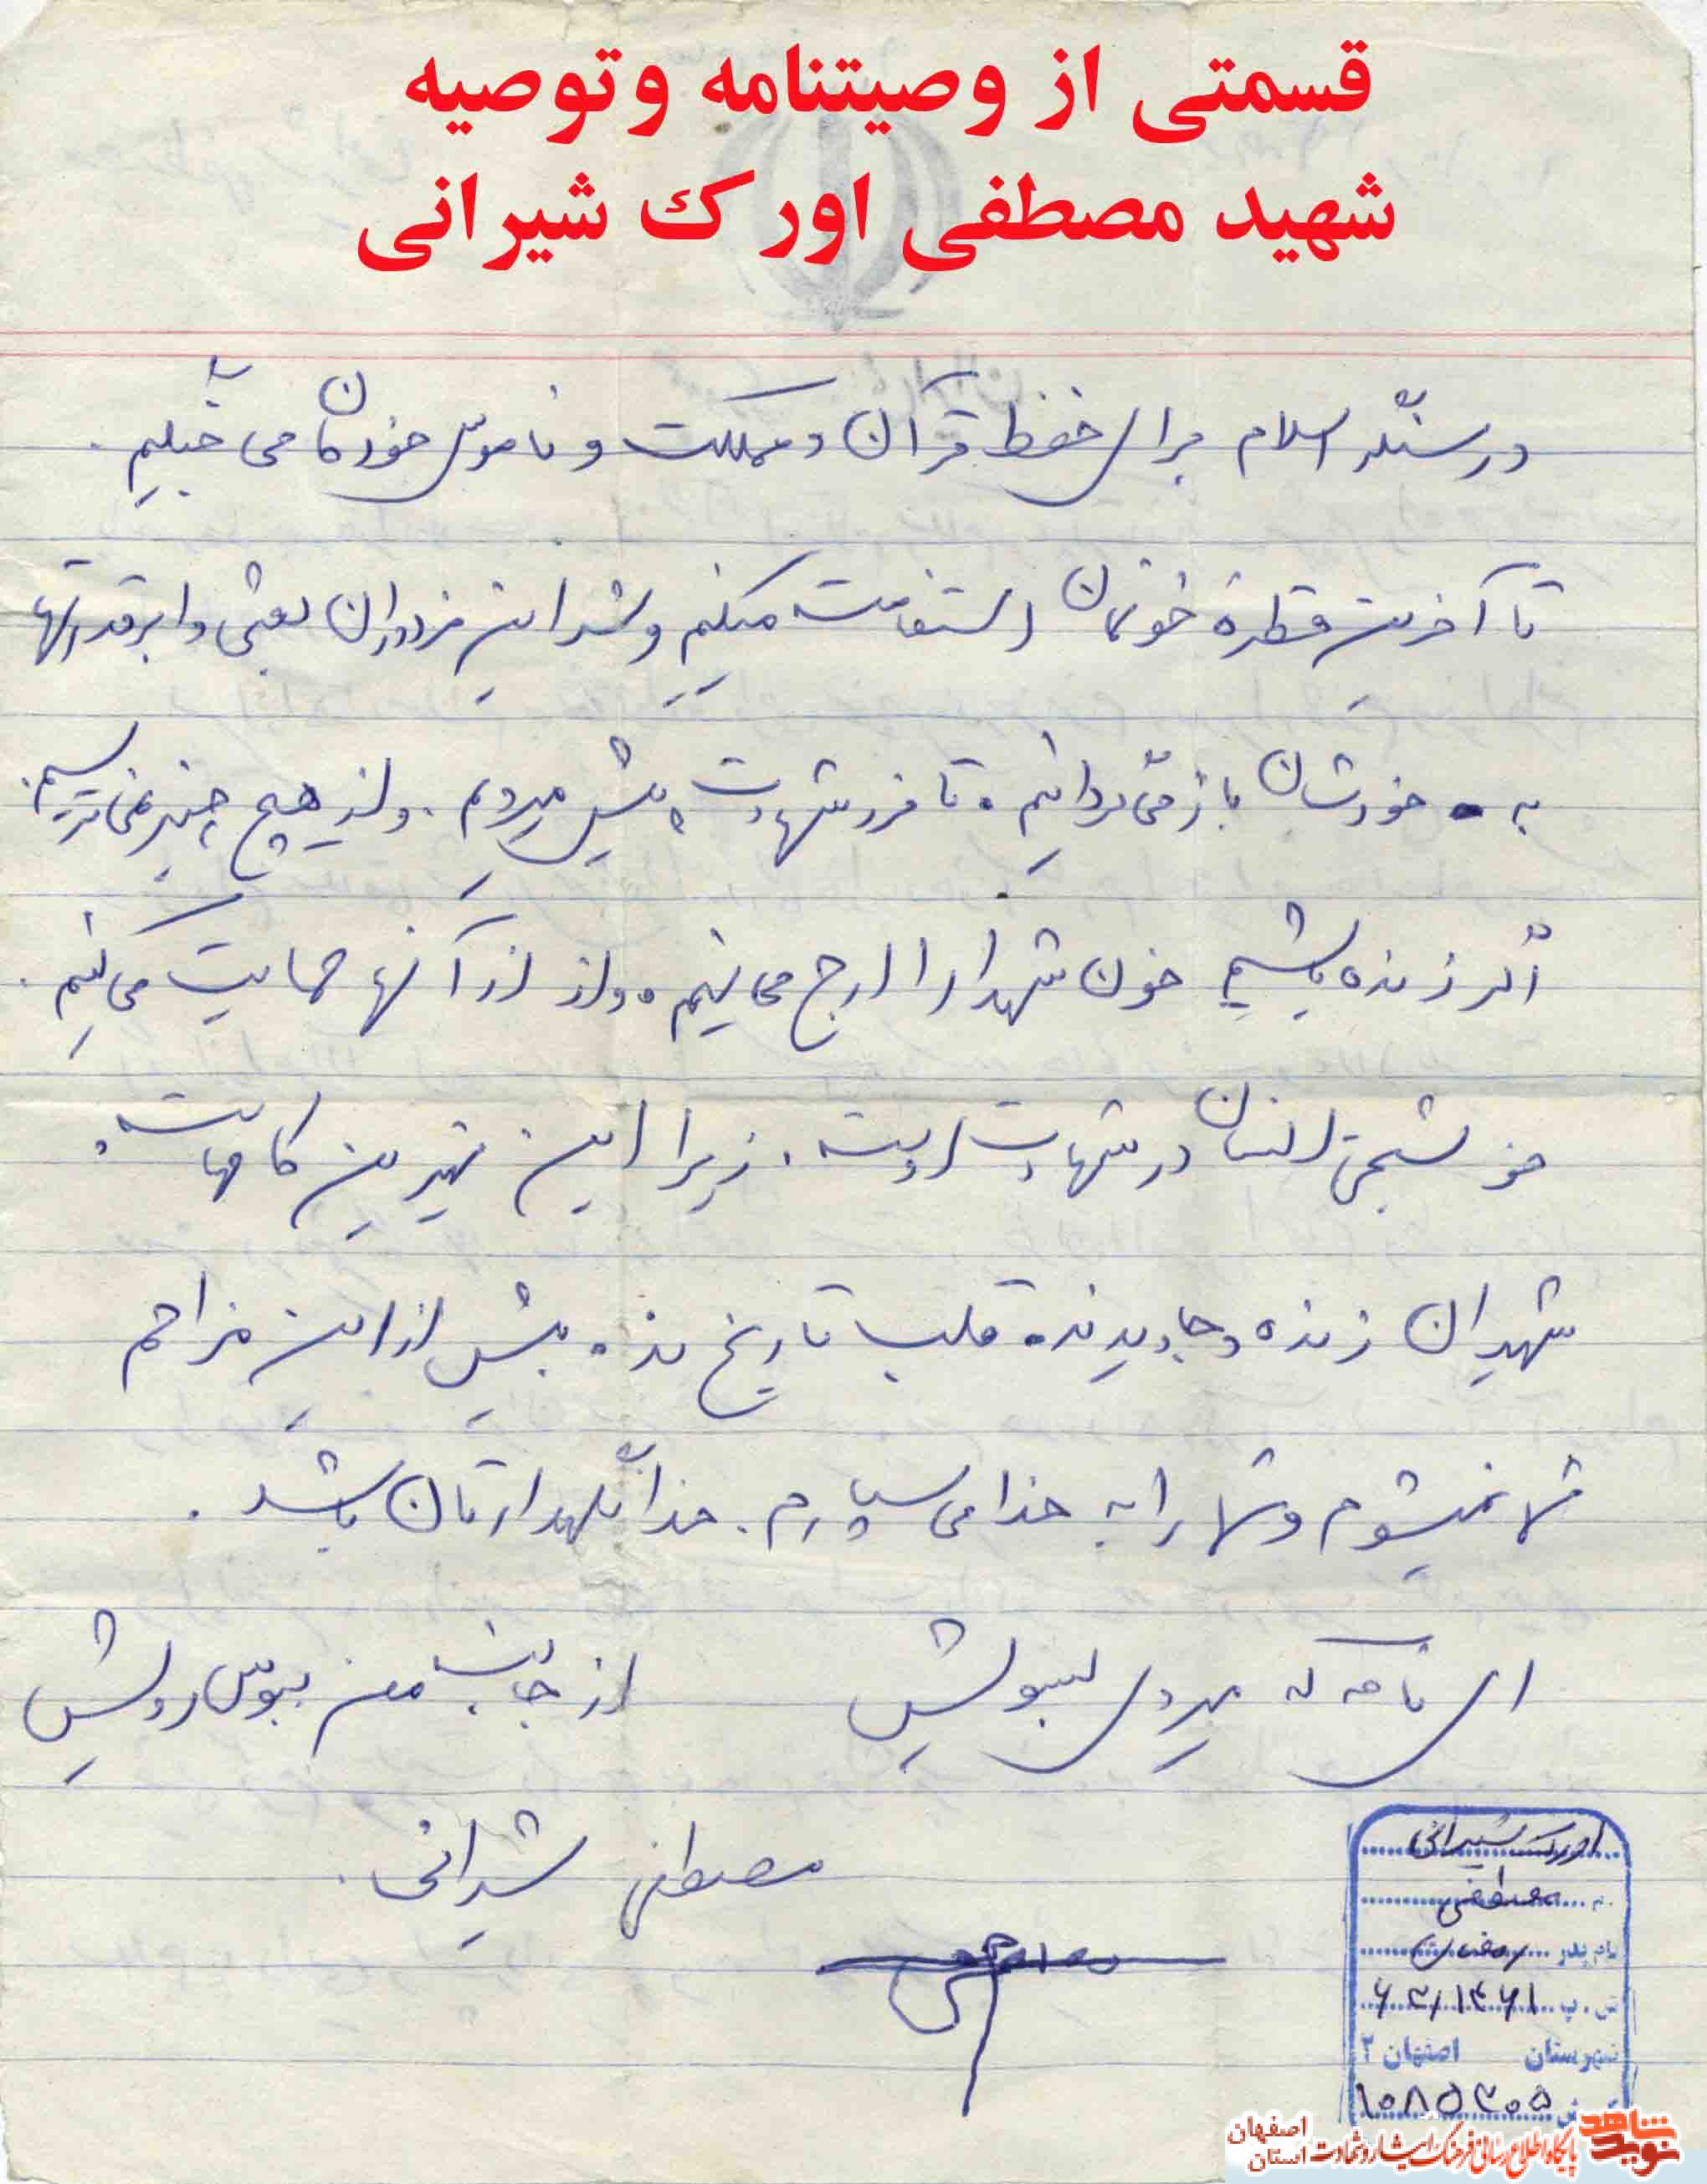 قسمتی از وصیتنامه وتوصیه
شهید مصطفی اورک شیرانی
در سنگر اسلام برای حفظ قرآن و مملکت و ناموس خودمان می جنگیم .
تا آخرین قطره خونمان استقامت میکنیم و شر این مزدوران بعثی و ابرقدرتها
به خودشان باز می گردانیم . تا مرز شهادت پیش میرویم . و از هیچ چیز نمی ترسیم .
اگر زنده باشیم خون شهدا را ارج می نهیم . و از از آنها حمایت می کنیم .
خوشبختی انسان در شهادت اوست . زیرا این بهترین کامهاست .
شهیدان زنده و جاویدند . قلب تاریخ ند . بیش از این مزاحم
شما نمیشوم و شما را به خدا می سپارم . خدا نگهدارتان باشد .
ای نامه که میروی بسویش از جانب من ببوس رویش
مصطفی شیرانی .
اورک شیرانی
مصطفی
نام پدر رمضان
ش . پ ۶۲/۱۴۶۱
شهرستان اصفهان ۲
۱۰۸۵۲۰۵
نوید شاهد
پایگاه اطلاع رسانی فرهنگ ایثار و شهادت استان اصفهان